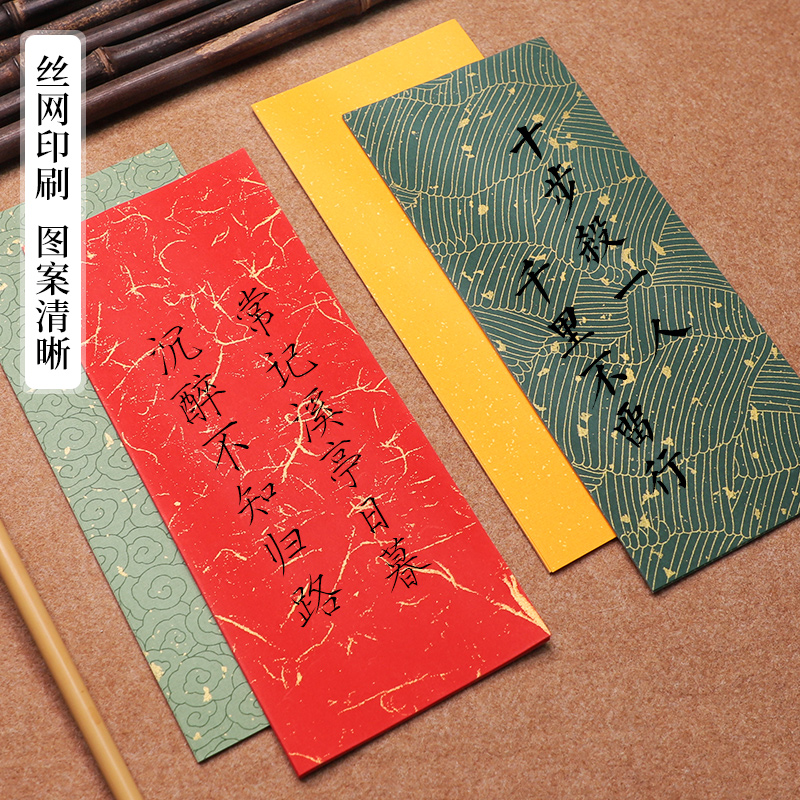 丝网印刷 图案清晰
常记溪亭日暮
沉醉不知归路
十步殺一人
千里不留行